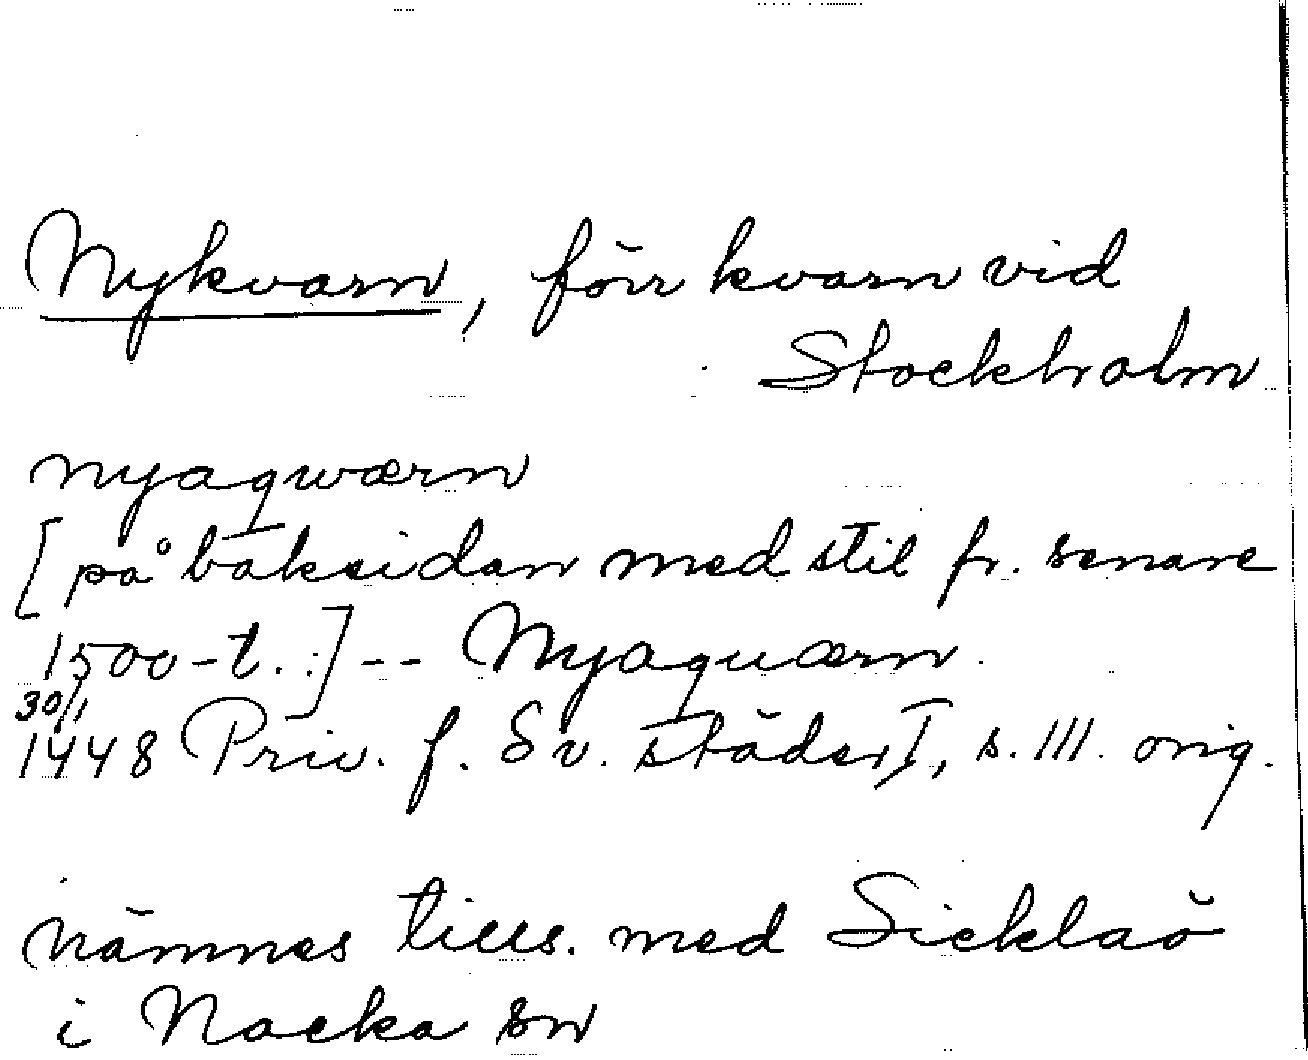 Nykvarn, förr kvarn vid
Stockholm
nyaqwærn
[på baksidan med stil fr. senare
1500-t. :] -- Nyaquærn.
30/1
1448 Priv. f. Sv. städer I, s. 111. orig.
nämnes tills. med Sicklaö
i Nacka sn